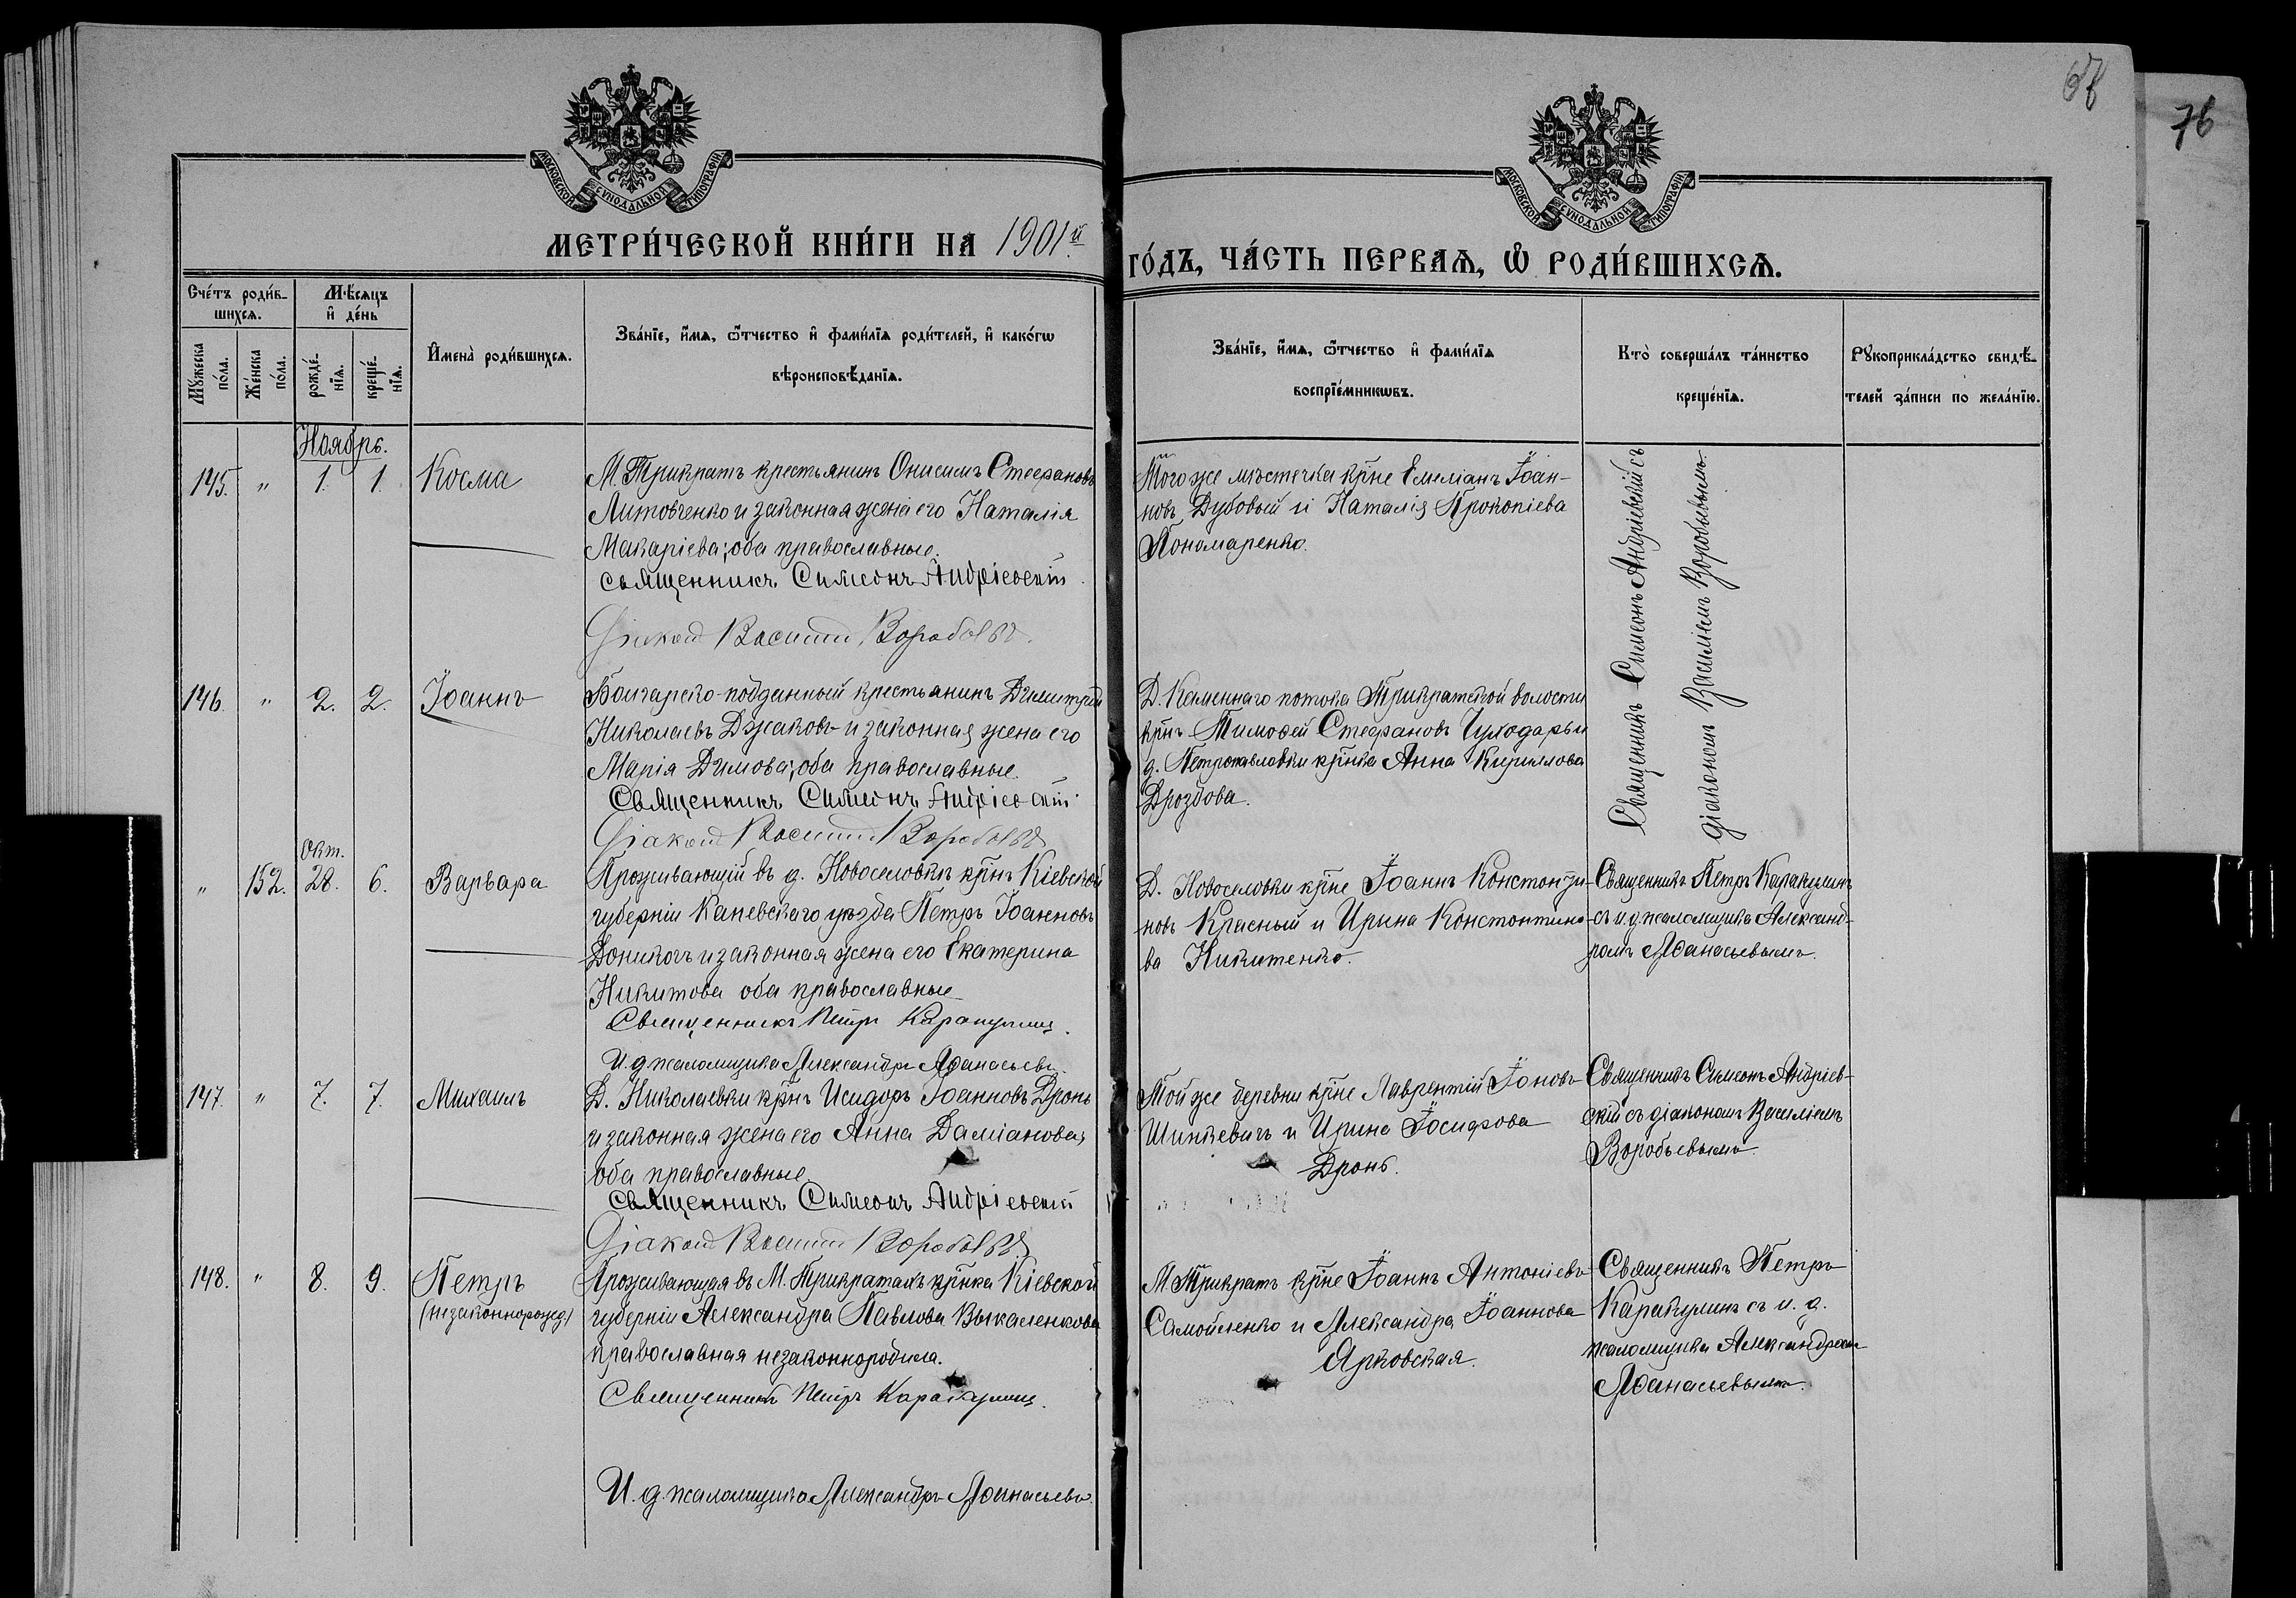 67
76
МОСКОВСКОЙ СУНОДАЛЬНОЙ ТИПОГРАФІИ
МОСКОВСКОЙ СУНОДАЛЬНОЙ ТИПОГРАФІИ
МЕТРИ́ЧЕСКОЙ КНИ́ГИ НА 1901й
ГО́ДЪ, ЧА́СТЬ ПЕРВАѦ, Ѡ҆ РОДИ́ВШИХСѦ.
Сче́тъ роди́в-
шихсѧ.
Мꙋ́жеска по́ла.
Же́нска по́ла.
Мѣ́сѧцъ
и҆ де́нь
рожде́-
нїѧ.
креще́-
нїѧ.
И҆мена̀ роди́вшихсѧ.
Зва́нїе, и҆́мѧ, ѻ҆́тчество и҆ фами́лїѧ роди́телей, и҆ како́гѡ
вѣроисповѣ́данїѧ.
Зва́нїе, и҆́мѧ, ѻ҆́тчество и҆ фами́лїѧ
воспрїе́мникѡвъ.
Кто̀ соверша́лъ та́инство
креще́нїѧ.
Рꙋкоприкла́дство свидѣ́-
телей за́писи по жела́нїю.
Ноябрь.
145. " 1. 1. Косма
М. Трикратъ крестьянинъ Онисимъ Стефановъ
Литовченко и законная жена его Наталія
Макаріева; оба православные.
Священникъ Симеонъ Андріевскій
Діаконъ Василій Воробьевъ.
Того же мѣстечка кр̃не Емеліанъ Іоан-
новъ Дубовый и Наталія Прокопіева
Пономаренко.
Священникъ Симеонъ Андріевскій съ
діакономъ Василіемъ Воробьевымъ.
146. " 2. 2. Іоаннъ
Болгарско-подданный крестьянинъ Димитрій
Николаевъ Джаковъ и законная жена его
Марія Димова; оба православные.
Священникъ Симеонъ Андріевскій
Діаконъ Василій Воробьевъ
Д. Каменнаго потока Трикратской волости
кр̃нъ Тимоѳей Стефановъ Чулодарь и
д. Петропавловки кр̃нка Анна Кириллова
Дроздова.
Окт.
" 152. 28. 6. Варвара
Проживающій въ д. Новоселовкѣ кр̃нъ Кіевской
губерніи Каневскаго уѣзда Петръ Іоанновъ
и законная жена его Екатерина
Никитова оба православные
Священникъ Петръ Каракулинъ.
И. д. псаломщика Александръ Аѳанасьевъ.
Д. Новоселовки кр̃не Іоаннъ Константи-
новъ Красный и Ирина Константино-
ва Никитенко.
Священникъ Петръ Каракулинъ
съ и. д. псаломщика Александ-
ромъ Аѳанасьевымъ.
147. " 7. 7. Михаилъ
Д. Николаевки кр̃нъ Исидоръ Іоанновъ Дронь
и законная жена его Анна Даміанова;
оба православные
Священникъ Симеонъ Андріевскій
Діаконъ Василій Воробьевъ
Той же деревни кр̃не Лаврентій Іоновъ
Шинкевичъ и Ирина Іосифова
Дронь.
Священникъ Симеонъ Андріев-
скій съ діакономъ Василіемъ
Воробьевымъ.
148. " 8. 9. Петръ
(незаконнорожд.)
Проживающая въ М. Трикратахъ кр̃нка Кіевской
губерніи Александра Павлова Выкаленкова
православная незаконнородила.
Священникъ Петръ Каракулинъ.
И. д. псаломщика Александръ Аѳанасьевъ.
М. Трикратъ кр̃не Іоаннъ Антоніевъ
Самойленко и Александра Іоаннова
Ярковская.
Священникъ Петръ
Каракулинъ съ и. д.
псаломщика Александромъ
Аѳанасьевымъ.